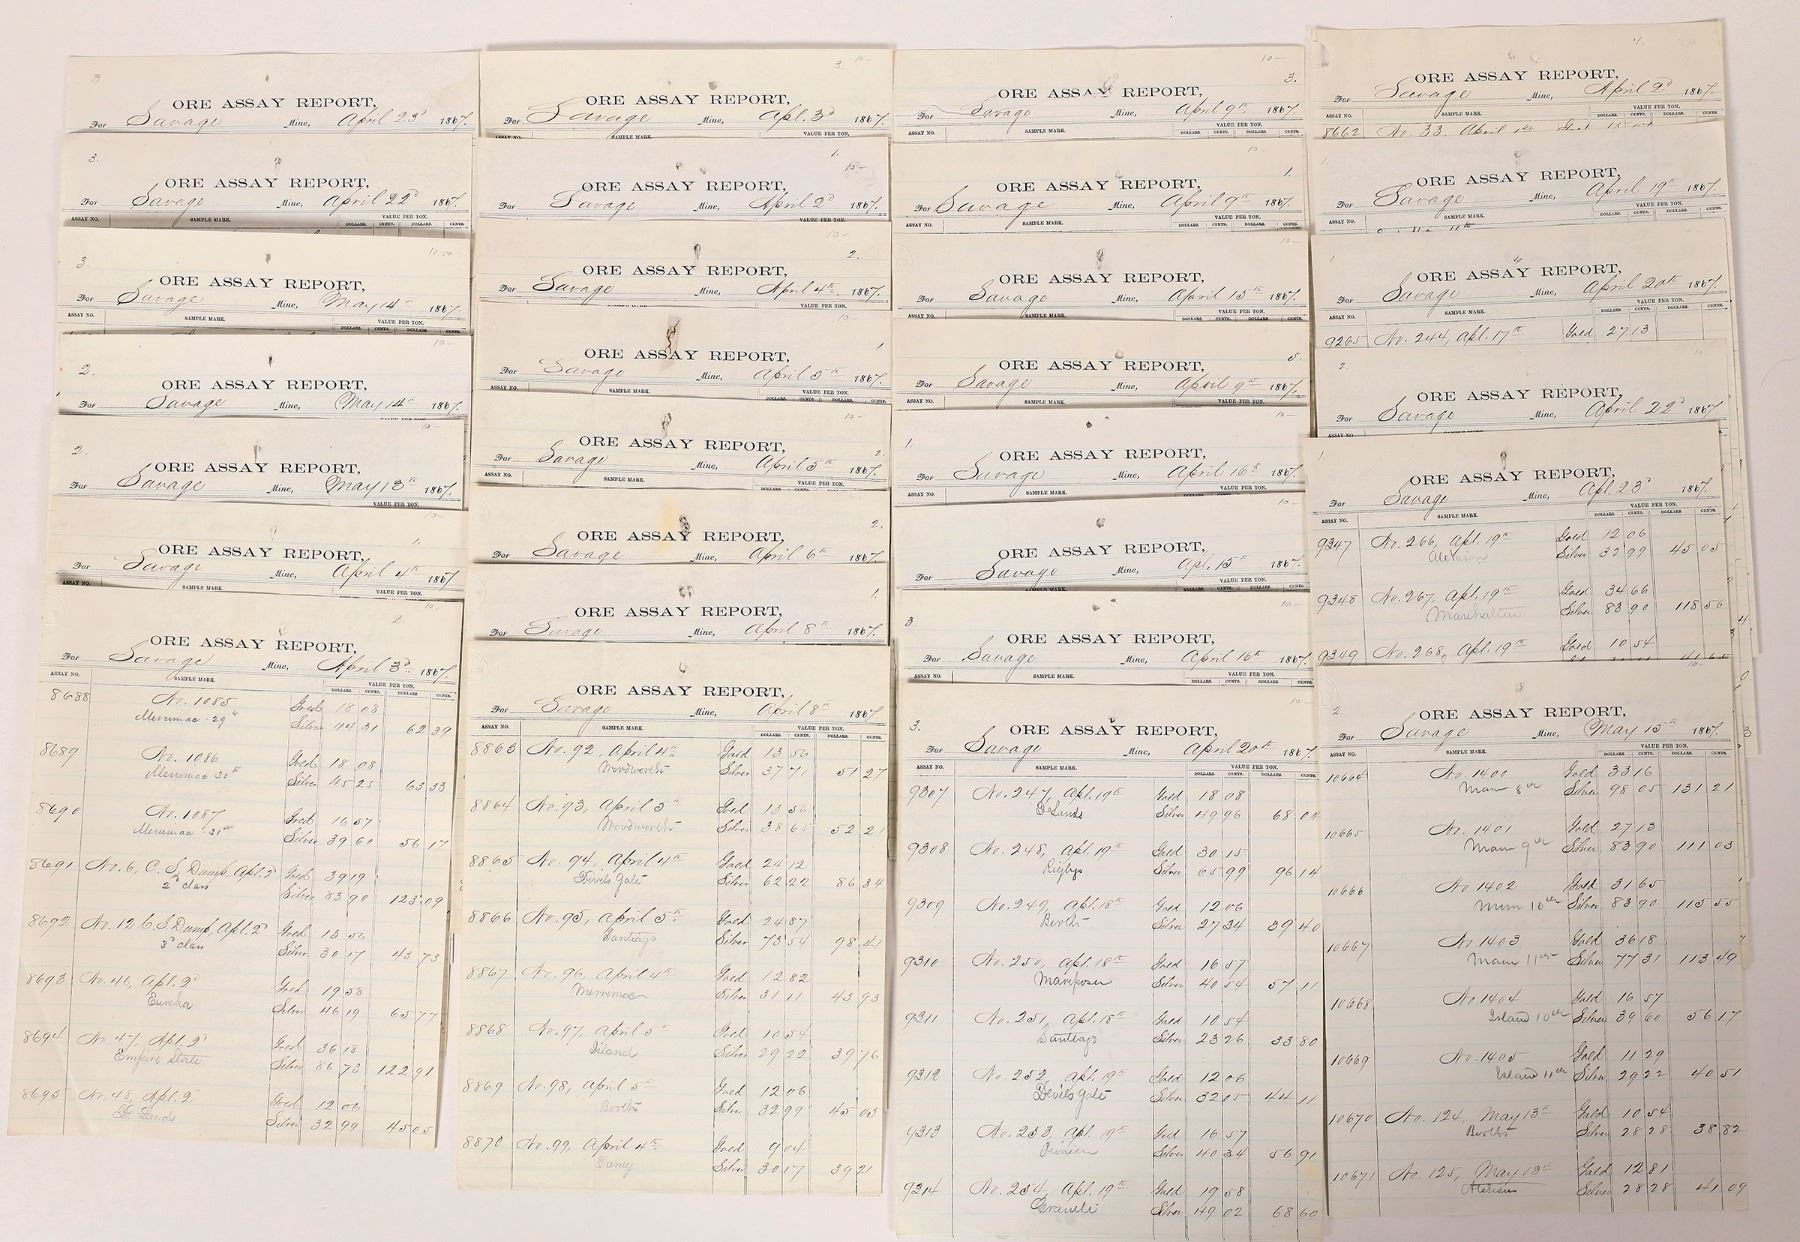 3
ORE ASSAY REPORT,
For Savage Mine, April 23d 1867.
3.
ORE ASSAY REPORT,
For Savage Mine, April 22d 1867.
ASSAY NO. SAMPLE MARK. VALUE PER TON.
DOLLARS. CENTS. DOLLARS. CENTS.
10.00
3.
ORE ASSAY REPORT,
For Savage Mine, May 14th 1867.
ASSAY NO. SAMPLE MARK. VALUE PER TON.
DOLLARS. CENTS. DOLLARS. CENTS.
10—
2.
ORE ASSAY REPORT,
For Savage Mine, May 14th 1867.
10—
2.
ORE ASSAY REPORT,
For Savage Mine, May 13th 1867.
VALUE PER TON.
10—
1.
ORE ASSAY REPORT,
For Savage Mine, April 4th 1867
ASSAY NO. SAMPLE MARK. VALUE PER TON.
10—
2
ORE ASSAY REPORT,
For Savage Mine, April 3d 1867.
ASSAY NO. SAMPLE MARK. VALUE PER TON.
DOLLARS. CENTS. DOLLARS. CENTS.
8688 No. 1085 Gold 18 08
Merrimac 29th Silver 44 31 62 39
8689 No. 1086 Gold 18 08
Merrimac 30th Silver 45 25 63 33
8690 No. 1087 Gold 16 57
Merrimac 31st Silver 39 60 56 17
8691 No. 6, C. S. Dump, Apl. 2d Gold 39 19
2d class Silver 83 90 123 09
8692 No. 12 C. S. Dump, Apl. 2d Gold 13 56
3d class Silver 30 17 43 73
8693 No. 46, Apl. 2d Gold 19 58
Eureka Silver 46 19 65 77
8694 No. 47, Apl. 2d Gold 36 18
Empire State Silver 86 73 122 91
8695 No. 48, Apl. 2d Gold 12 06
Silver 32 99 45 05
3. 10—
ORE ASSAY REPORT,
For Savage Mine, Apl. 3d 1867.
ASSAY NO. SAMPLE MARK. VALUE PER TON.
1. 10—
ORE ASSAY REPORT,
For Savage Mine, April 2d 1867.
VALUE PER TON.
10— 2.
ORE ASSAY REPORT,
For Savage Mine, April 4th 1867.
VALUE PER TON.
10— 1
ORE ASSAY REPORT,
For Savage Mine, April 5th 1867.
ASSAY NO. SAMPLE MARK. VALUE PER TON.
DOLLARS. CENTS. DOLLARS. CENTS.
10— 2.
ORE ASSAY REPORT,
For Savage Mine, April 5th 1867.
ASSAY NO. SAMPLE MARK. VALUE PER TON.
2.
ORE ASSAY REPORT,
For Savage Mine, April 6th 1867.
1.
ORE ASSAY REPORT,
For Savage Mine, April 8th 1867.
ORE ASSAY REPORT,
For Savage Mine, April 8th 1867
ASSAY NO. SAMPLE MARK. VALUE PER TON.
DOLLARS. CENTS. DOLLARS. CENTS.
8863 No. 92, April 4th Gold 13 56
Silver 37 71 51 27
8864 No. 93, April 3d Gold 13 56
Silver 38 65 52 21
8865 No. 94, April 4th Gold 24 12
Devils Gate Silver 62 22 86 34
8866 No. 95, April 5th Gold 24 87
Santiago Silver 73 54 98 41
8867 No. 96, April 4th Gold 12 82
Merrimac Silver 31 11 43 93
8868 No. 97, April 5th Gold 10 54
Island Silver 29 22 39 76
8869 No. 98, April 5th Gold 12 06
Silver 32 99 45 05
8870 No. 99, April 4th Gold 9 04
Silver 30 17 39 21
10— 3.
ORE ASSAY REPORT,
For Savage Mine, April 9th 1867.
ASSAY NO. SAMPLE MARK. VALUE PER TON.
DOLLARS. CENTS. DOLLARS. CENTS.
10— 1.
ORE ASSAY REPORT,
For Savage Mine, April 9th 1867.
ASSAY NO. SAMPLE MARK. VALUE PER TON.
DOLLARS. CENTS. DOLLARS. CENTS.
10—
ORE ASSAY REPORT,
For Savage Mine, April 15th 1867.
ASSAY NO. SAMPLE MARK. VALUE PER TON.
DOLLARS. CENTS. DOLLARS. CENTS.
5.
ORE ASSAY REPORT,
For Savage Mine, April 9th 1867.
ASSAY NO. SAMPLE MARK. VALUE PER TON.
10—
1.
ORE ASSAY REPORT,
For Savage Mine, April 16th 1867.
ASSAY NO. SAMPLE MARK. VALUE PER TON.
10—
ORE ASSAY REPORT,
For Savage Mine, Apl. 15th 1867.
ASSAY NO. SAMPLE MARK. VALUE PER TON.
DOLLARS. CENTS. DOLLARS. CENTS.
10—
3.
ORE ASSAY REPORT,
For Savage Mine, April 16th 1867.
ASSAY NO. SAMPLE MARK. VALUE PER TON.
DOLLARS. CENTS. DOLLARS. CENTS.
10—
3.
ORE ASSAY REPORT,
For Savage Mine, April 20th 1867.
ASSAY NO. SAMPLE MARK. VALUE PER TON.
DOLLARS. CENTS. DOLLARS. CENTS.
9307 No. 247, Apl. 19th Gold 18 08
Silver 49 96 68 04
9308 No. 248, Apl. 19th Gold 30 15
Silver 65 99 96 14
9309 No. 249, Apl. 18th Gold 12 06
Silver 27 34 39 40
9310 No. 250, Apl. 18th Gold 16 57
Mariposa Silver 40 54 57 11
9311 No. 251, Apl. 18th Gold 10 54
Santiago Silver 23 26 33 80
9312 No. 252, Apl. 19th Gold 12 06
Devils Gate Silver 32 05 44 11
9313 No. 253, Apl. 19th Gold 16 57
Pioneer Silver 40 34 56 91
9314 No. 254, Apl. 19th Gold 19 58
Silver 49 02 68 60
4.
ORE ASSAY REPORT,
For Savage Mine, April 2d 1867.
ASSAY NO. SAMPLE MARK. VALUE PER TON.
DOLLARS. CENTS. DOLLARS. CENTS.
8662 No. 33. April 1st
1.
ORE ASSAY REPORT,
For Savage Mine, April 19th 1867.
ASSAY NO. SAMPLE MARK. VALUE PER TON.
DOLLARS. CENTS. DOLLARS. CENTS.
1
ORE ASSAY REPORT,
For Savage Mine, April 20th 1867.
ASSAY NO. SAMPLE MARK. VALUE PER TON.
DOLLARS. CENTS. DOLLARS. CENTS.
9265 No. 244, Apl. 17th Gold 27 13
2.
ORE ASSAY REPORT,
For Savage Mine, April 22d 1867.
ASSAY NO. SAMPLE MARK. VALUE PER TON.
1
ORE ASSAY REPORT,
For Savage Mine, Apl. 23d 1867.
ASSAY NO. SAMPLE MARK. VALUE PER TON.
DOLLARS. CENTS. DOLLARS. CENTS.
9347 No. 266, Apl. 19th Gold 12 06
Silver 32 99 45 05
9348 No. 267, Apl. 19th Gold 34 66
Manhattan Silver 83 90 118 56
9349 No. 268, Apl. 19th Gold 10 54
10—
2.
ORE ASSAY REPORT,
For Savage Mine, May 15th 1867.
ASSAY NO. SAMPLE MARK. VALUE PER TON.
DOLLARS. CENTS. DOLLARS. CENTS.
10664 No. 1400 Gold 33 16
Main 8th Silver 98 05 131 21
10665 No. 1401 Gold 27 13
Main 9th Silver 83 90 111 03
10666 No. 1402 Gold 31 65
Main 10th Silver 83 90 115 55
10667 No. 1403 Gold 36 18
Main 11th Silver 77 31 113 49
10668 No. 1404 Gold 16 57
Island 10th Silver 39 60 56 17
10669 No. 1405 Gold 11 29
Island 11th Silver 29 22 40 51
10670 No. 124, May 13th Gold 10 54
Silver 28 28 38 82
10671 No. 125, May 13th Gold 12 81
Silver 28 28 41 09